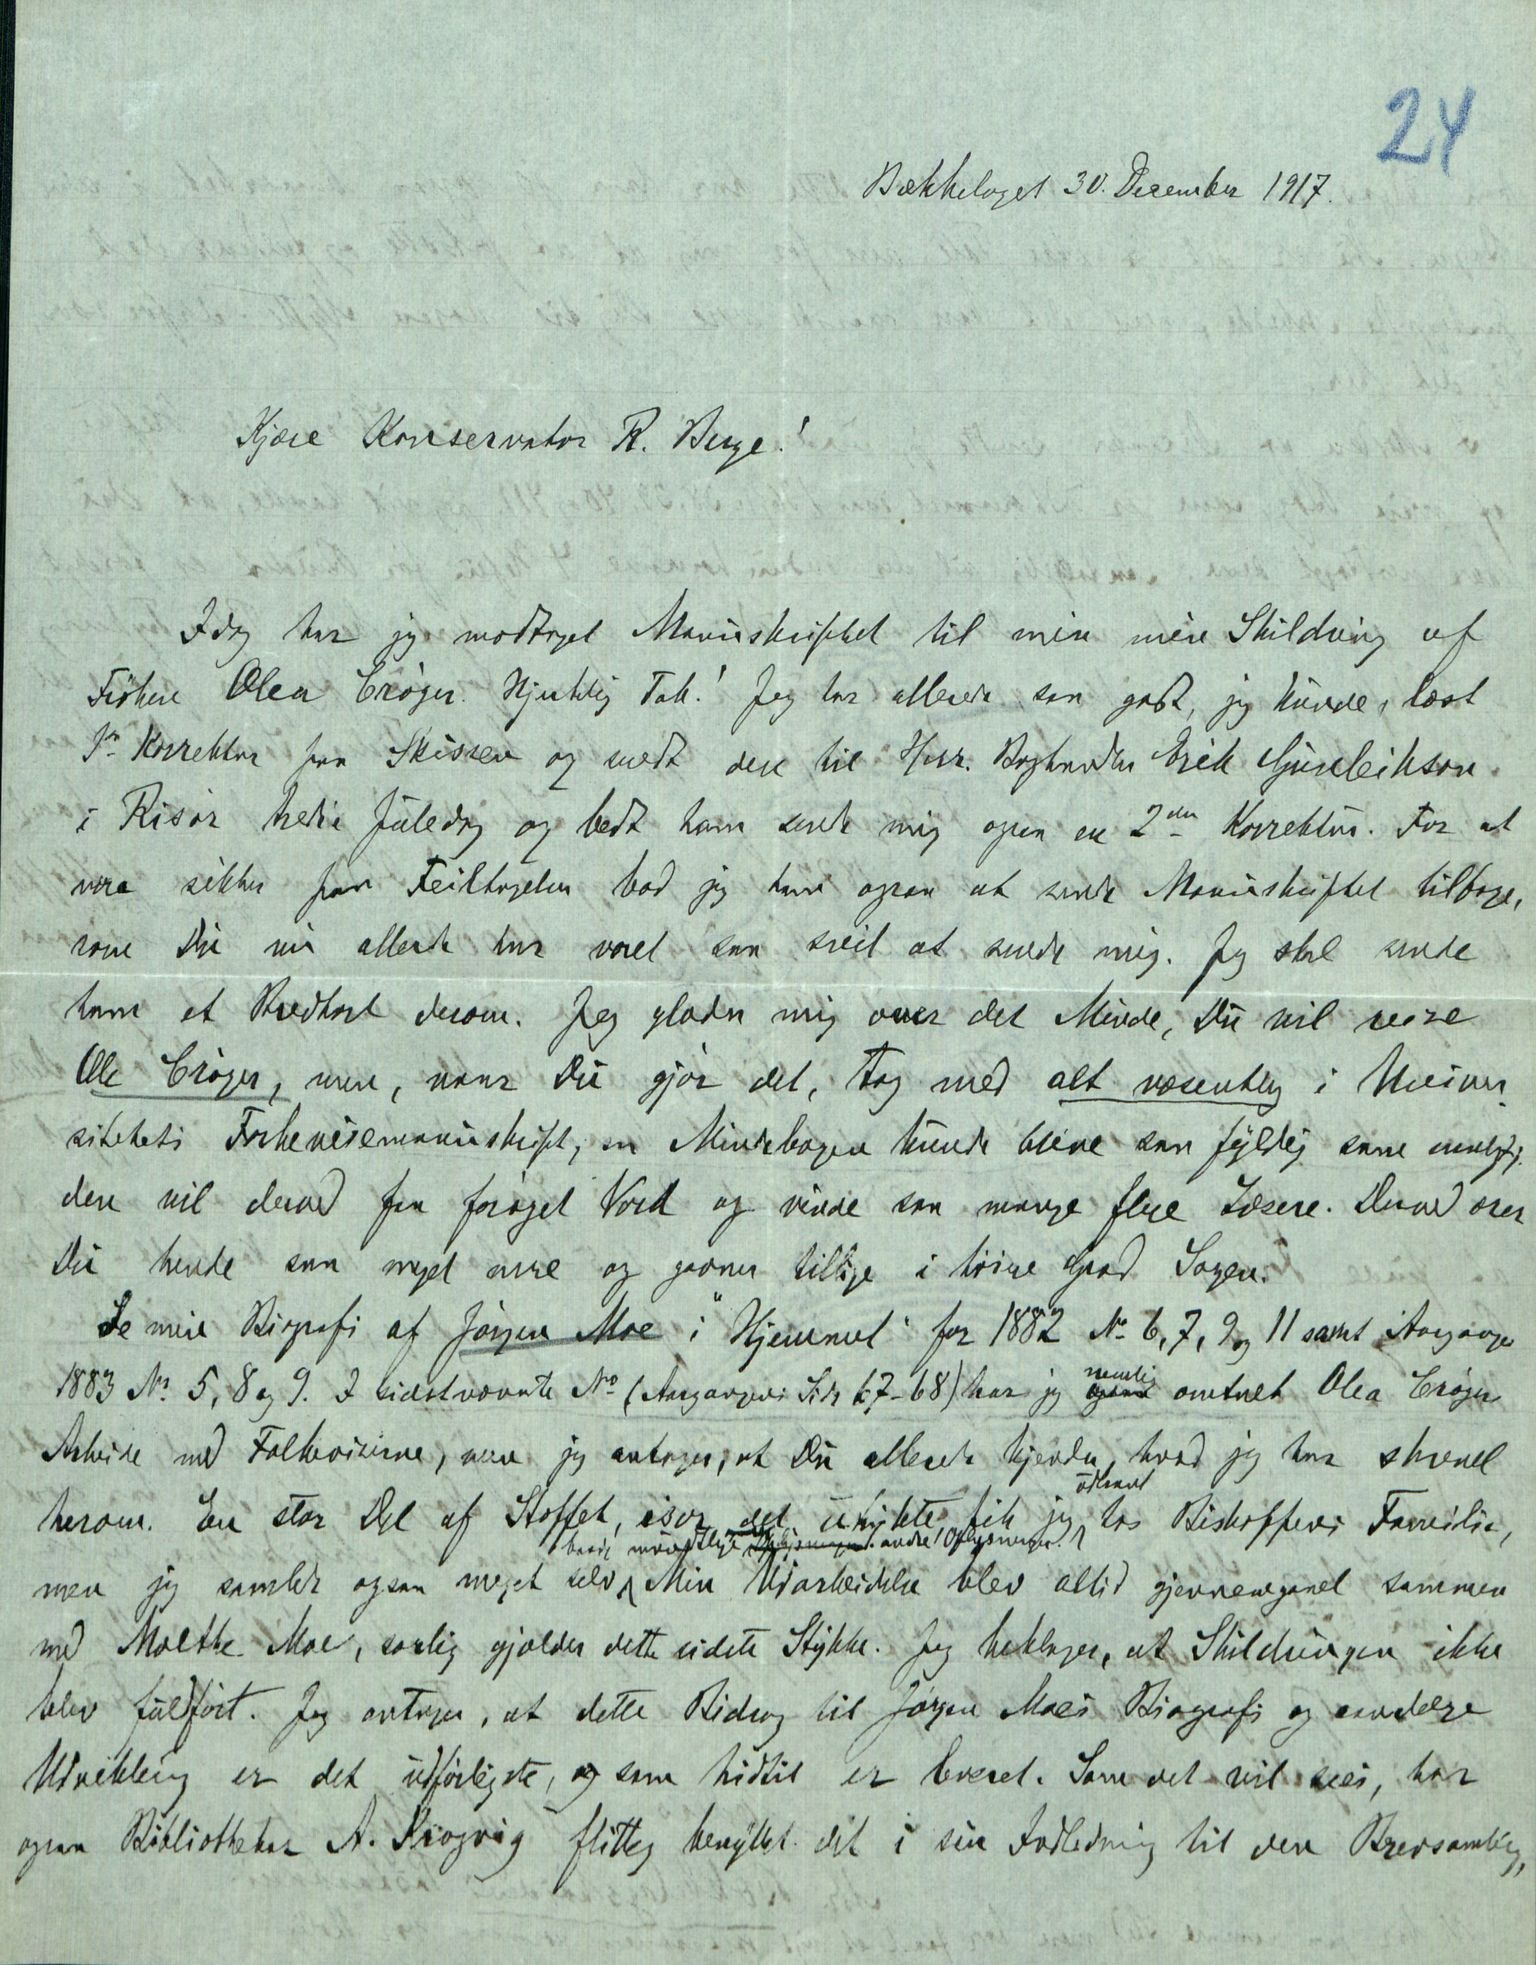 24
Bækkelaget 30. December 1917.
Kjære Konservator R. Berge!
Idag har jeg modtaget Manuskriptet til min mere Skildring af
Frøken Olea Crøger. Hjertelig Tak! Jeg har allerede saa godt, jeg kunde, læst
1ste Korrektur paa Skissen og sendt den til Hrr. Boghandler Erik Gunleikson
i Risør tredie Juledag og bedt ham sende mig ogsaa en 2den Korrektur. For at
være sikker paa Feiltagelser bad jeg ham ogsaa at sende Manuskriptet tilbage,
som Du nu allerede har været saa snil at sende mig. Jeg skal sende
ham et Brevkort derom. Jeg glæder mig over det Minde, Du vil reise
Ole Crøger, men, naar Du gjør det, tag med alt væsentlig i Univer-
sitetets Folkevisemanuskript, saa Mindebogen kunde blive saa fyldig som muligt;
den vil derved faa forøget Værd og vinde saa mange flere Læsere. Derved ærer
Du hende saa meget mere og gavner tillige i høiere Grad Sagen.
Se min Biografi af Jørgen Moe i "Hjemmet" for 1882 No 6, 7, 9 og 11 samt Aargangen
1883 No 5, 8 og 9. I sidstnævnte No (Aargangens Side 67-68) har jeg nemlig omtalt Olea Crøgers
Arbeide med Folkeviserne, men jeg antager, at Du allerede kjender, hvad jeg har skrevet
herom. En stor Del af Stoffet, især det utrykte, fik jeg udlaant hos Biskoppens Familie,
men jeg samlede ogsaa meget selv, baade mundtlige og andre Oplysninger. Min Udarbeidelse blev altid gjennemgaaet sammen
med Moltke Moe, særlig gjælder dette sidste Stykke. Jeg beklager, at Skildringen ikke
blev fuldført. Jeg antager, at dette Bidrag til Jørgen Moes Biografi og aandelige
Udvikling er det udførligste, som hidtil er leveret. Som det vil sees, har
ogsaa Bibliothekar A. Krogvig flittig benyttet det i sin Indledning til den Brevsamling,